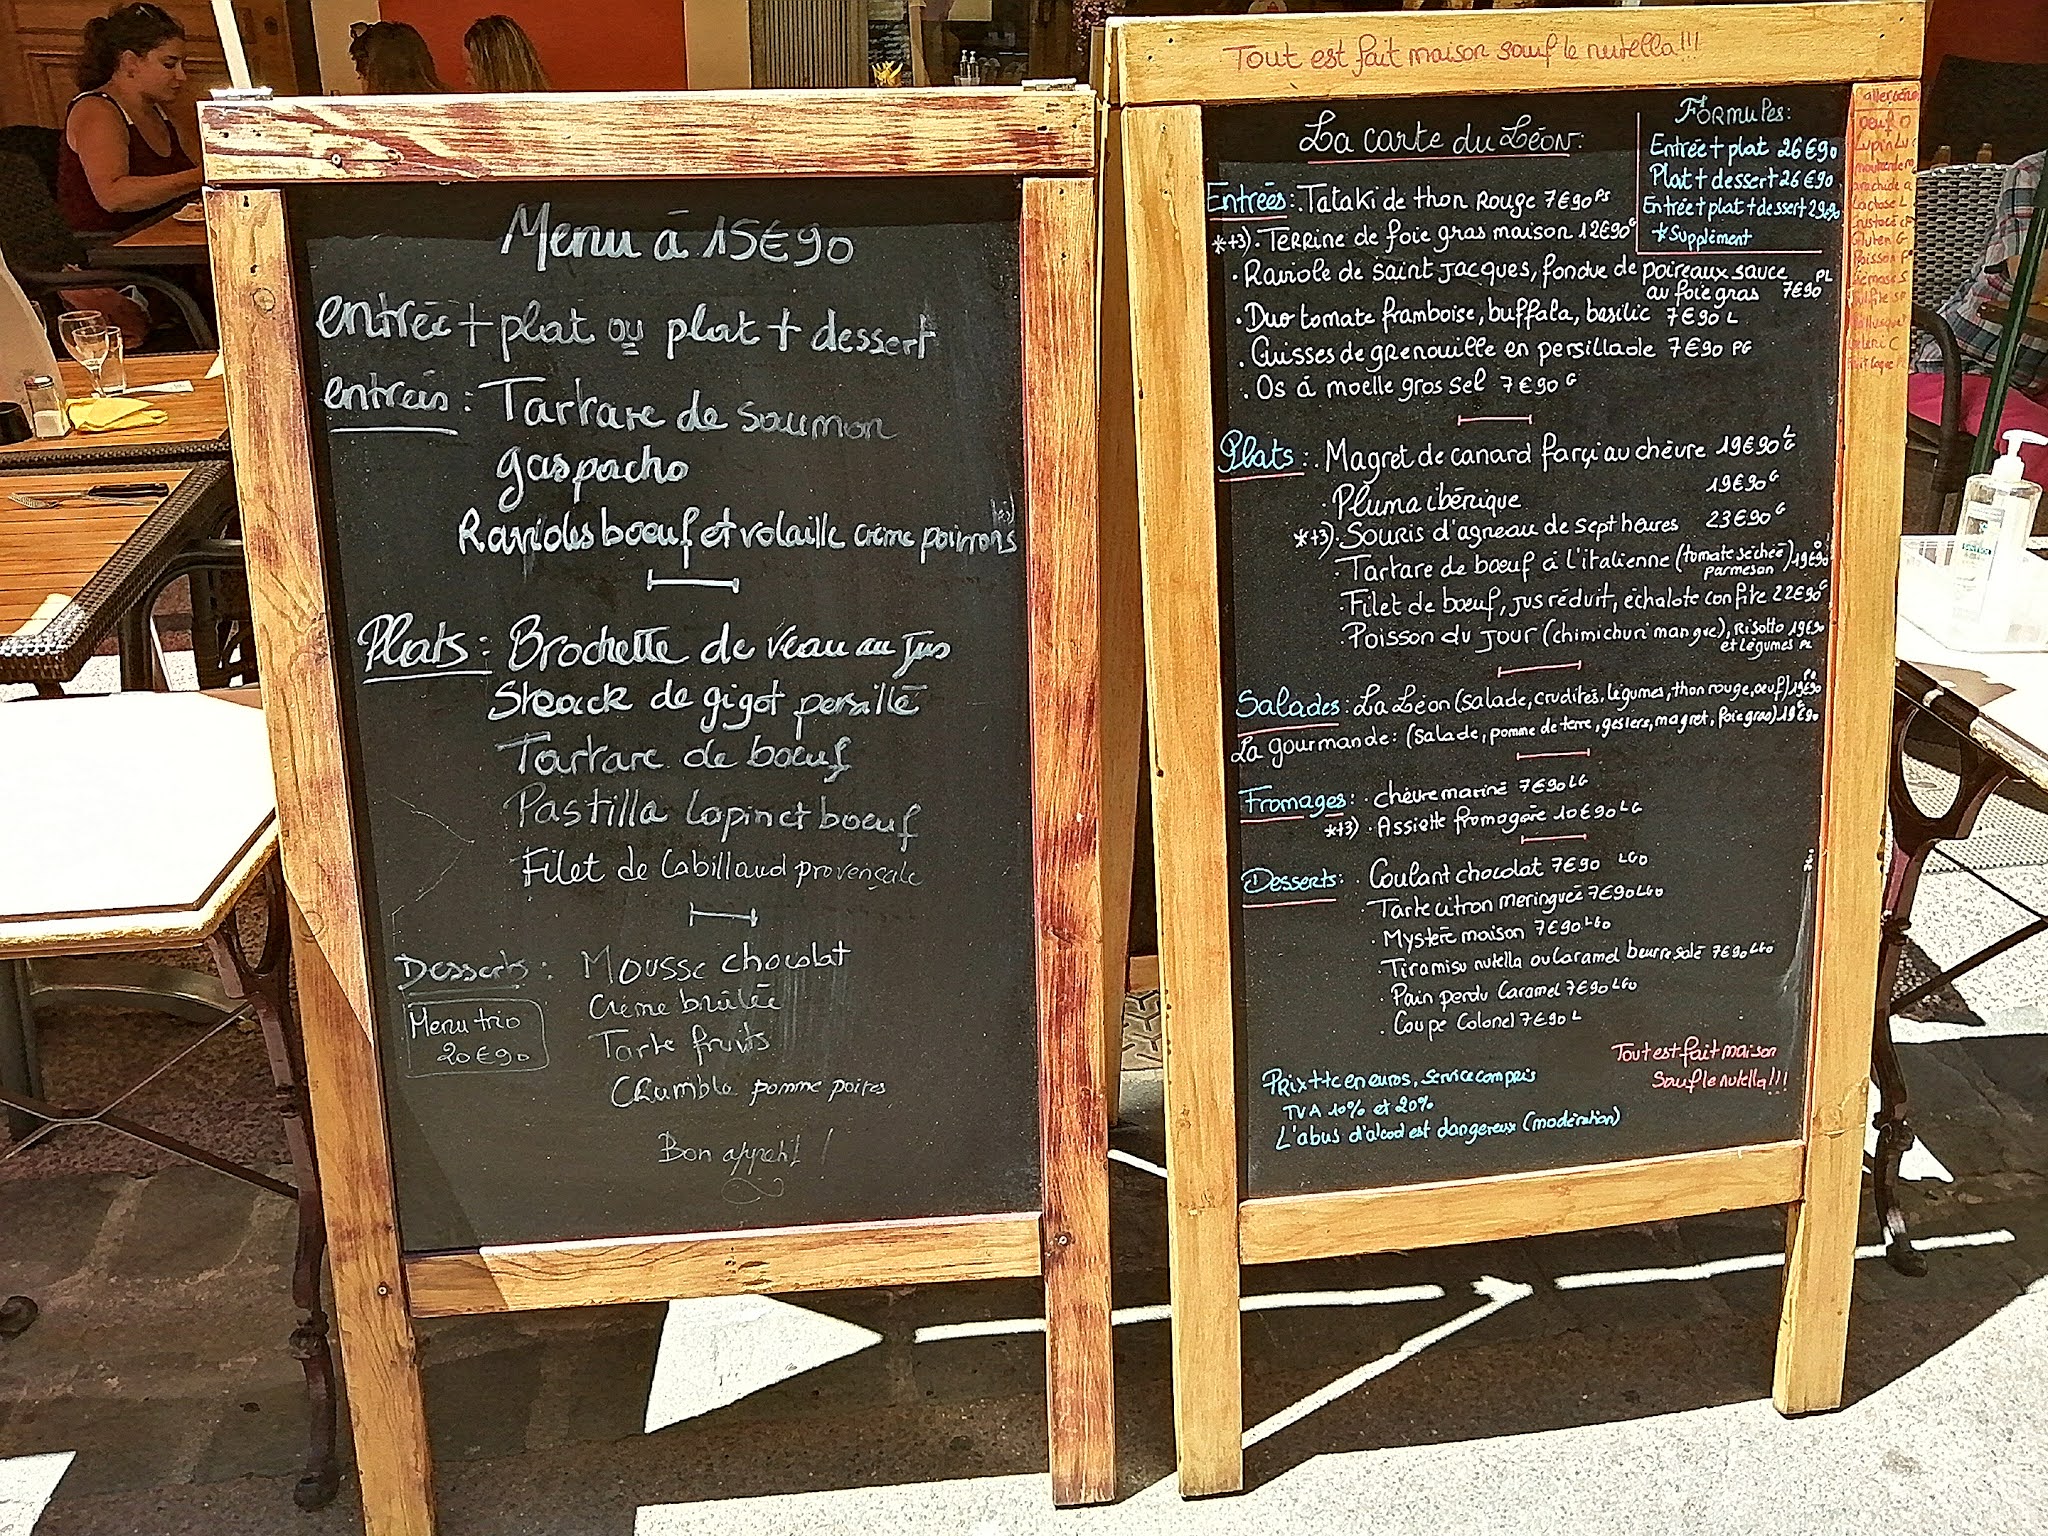 Menu à 15€90
entrée + plat ou plat + dessert
entrées : Tartare de saumon
gaspacho
Ravioles boeuf et volaille crème poivrons
Plats : Brochette de veau au jus
Steack de gigot persillé
Tartare de boeuf
Pastilla lapin et boeuf
Filet de Cabillaud provençale
Desserts : Mousse chocolat
Crème brûlée
Menu trio
20€90
Tarte fruits
Crumble pomme poires
Bon appetit !
Tout est fait maison sauf le nutella!!!
La carte du Léon:
Formules:
Entrée + plat 26€90
Plat + dessert 26€90
Entrée + plat + dessert 29€90
*Supplément
Entrées: . Tataki de thon Rouge 7€90 PS
*+3) . Terrine de foie gras maison 12€90 G
. Raviole de saint Jacques, fondue de poireaux sauce
au foie gras 7€90 PL
. Duo tomate framboise, buffala, basilic 7€90 L
. Cuisses de grenouille en persillade 7€90 PG
. Os à moelle gros sel 7€90 G
Plats: . Magret de canard farçi au chèvre 19€90 LG
. Pluma ibérique 19€90 G
*+3) . Souris d'agneau de sept heures 23€90 G
. Tartare de boeuf à l'italienne (tomate séchée parmesan) 19€90
. Filet de boeuf, jus réduit, échalote confite 22€90 G
. Poisson du jour (chimichuri mangue), Risotto 19€90
et légumes PL
Salades: . La Léon (salade, crudités, légumes, thon rouge, oeuf) 19€90
La gourmande: (salade, pomme de terre, gesiers, magret, foie gras) 19€90
Fromages: . chèvre mariné 7€90 LG
*+3) . Assiette fromagère 10€90 LG
Desserts: . Coulant chocolat 7€90 LGO
. Tarte citron meringuée 7€90 LGO
. Mystère maison 7€90 LGO
. Tiramisu nutella ou Caramel beurre salé 7€90 LGO
. Pain perdu Caramel 7€90 LGO
. Coupe Colonel 7€90 L
Tout est fait maison
sauf le nutella!!!
Prix ttc en euros, service compris
TVA 10% et 20%
L'abus d'alcool est dangereux (modération)
allergène
oeuf O
Lupin Lu
moutarde
arachide a
Lactose L
Gluten G
Poisson P